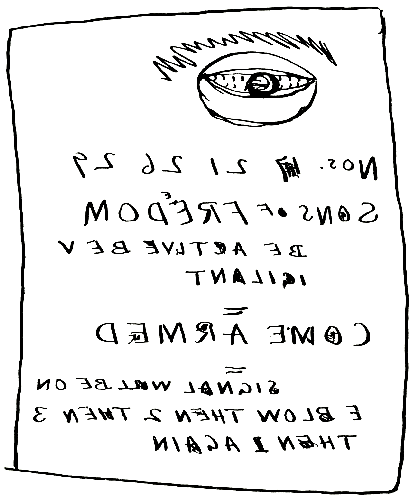 Nos. 21 26 29
SONS OF FREEDOM
BE ACTIVE BE V
IGILANT
COME ARMED
SIGNAL WILL BE ON
E BLOW THEN 2 THEN 3
THEN 1 AGAIN